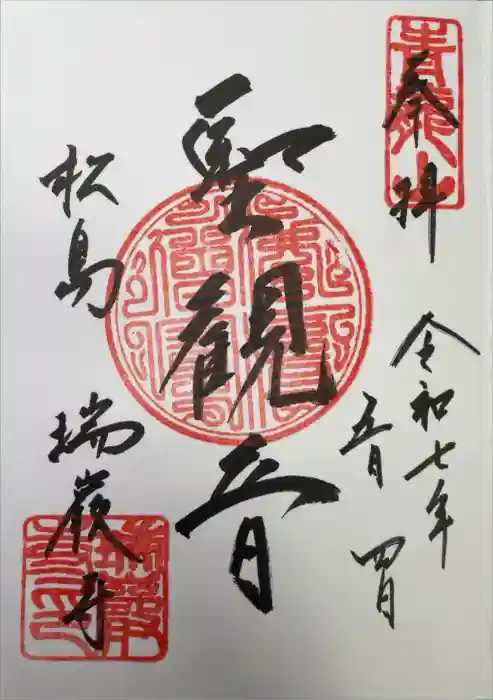 青龍山
奉拝
令和七年
五月
四日
聖観音
松島
瑞巌寺